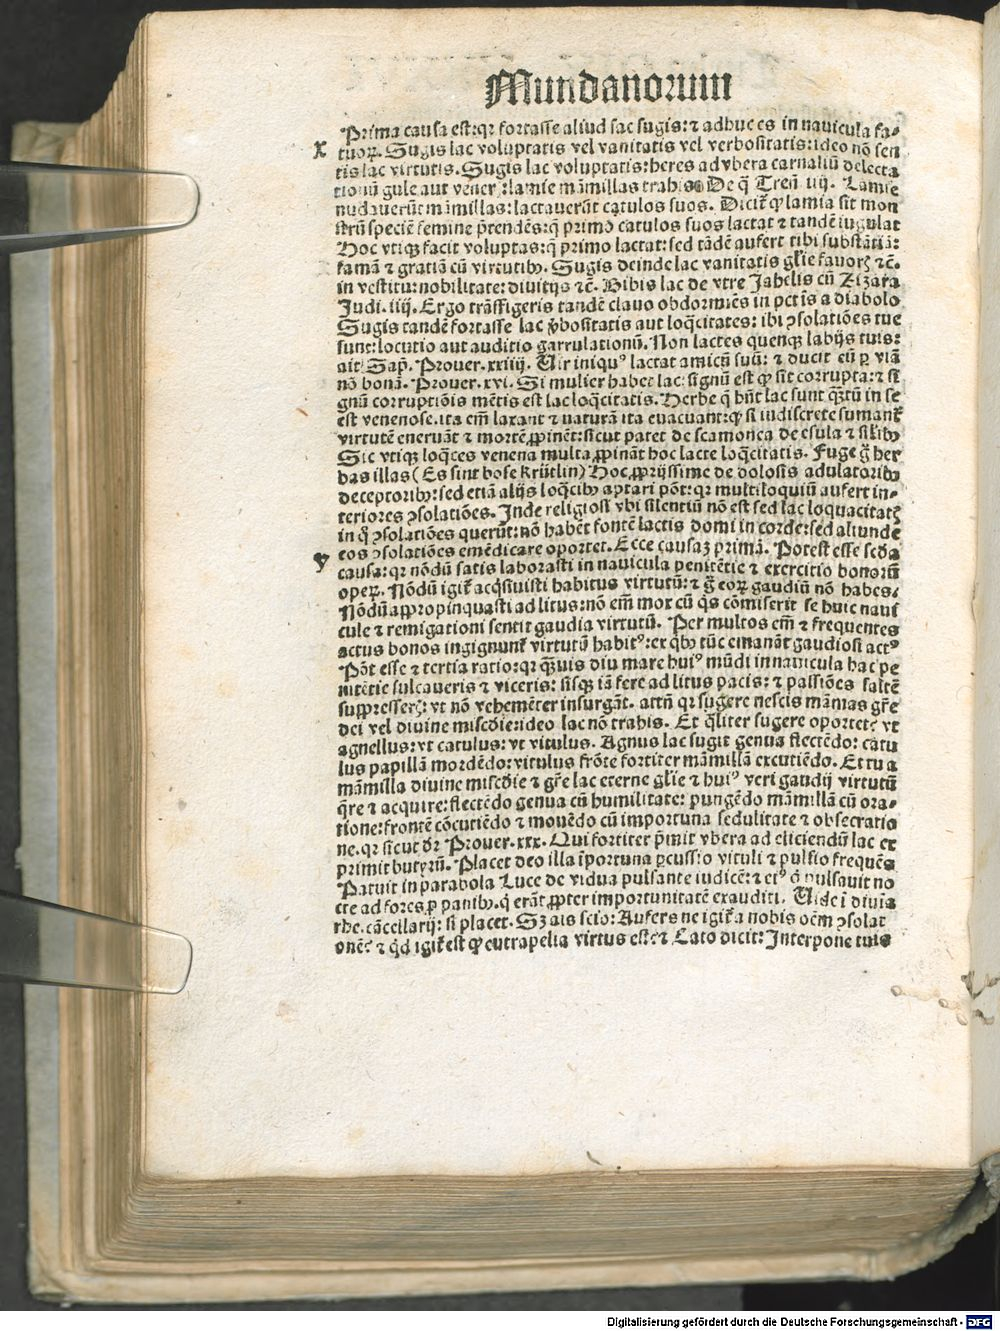 Mundanorum
Prima causa est:qꝛ fortasse aliud lac sugis:⁊ adhuc es in nauicula fa-
X
tuoꝝ. Sugis lac voluptatis vel vanitatis vel verbositatis:ideo nō sen
tis lac virtutis. Sugis lac voluptatis:heres ad vbera carnaliū delecta
tionū gule aut vener :lamie māmillas trahis De q̄ Treñ iiij. Lamie
nudauerūt māmillas:lactauerūt catulos suos. Dicit̄ ꝙ lamia sit mon
strū speciē femine p̄tendēs:q̄ primo catulos suos lactat ⁊ tandē iugulat
Hoc vtiqꝫ facit voluptas:q̄ primo lactat:sed tādē aufert tibi substātiā:
famā ⁊ gratiā cū virtutibꝰ. Sugis deinde lac vanitatis gl̄ie fauorꝭ ⁊c̄.
in vestitu:nobilitate:diuitijs ⁊c̄. Bibis lac de vtre Jahelis cū Zizara
Judi. iiij. Ergo trāsfigeris tandē clauo obdormiēs in pctīs a diabolo
Sugis tandē fortasse lac v̄bositatis aut loq̄citatis: ibi ꝯsolatiōes tue
sunt:locutio aut auditio garrulationū. Non lactes quenqꝫ labijs tuis:
ait Sap̄. Prouer. xxiiij. Uir iniquꝰ lactat amicū suū: ⁊ ducit eū ꝑ viā
nō bonā. Prouer. xvi. Si mulier habet lac:signū est ꝙ sit corrupta:⁊ si
gnū corruptiōis mētis est lac loq̄citatis. Herbe q̄ hn̄t lac sunt q̄ꝫtū in se
est venenose.ita em̄ laxant ⁊ naturā ita euacuant:ꝙ si indiscrete sumant̄
virtutē eneruāt ⁊ mortē ꝓpinēt:sicut patet de scamonea de esula ⁊ sil̄ibꝰ
Sic vtiqꝫ loq̄ces venena multa ꝓpināt hoc lacte loq̄citatis. Fuge g̊ her
bas illas (Es sint bose krütlin) Hoc ꝓprijssime de dolosis adulatoribꝰ
deceptoribꝰ:sed etiā alijs loq̄cibꝰ aptari pōt:qꝛ multiloquiū aufert in-
teriores ꝯsolatiōes. Inde religiosi vbi silentiū nō est sed lac loquacitatꝭ
in q̊ ꝯsolatiōes querūt:nō habēt fontē lactis domi in corde:sed aliunde
eos ꝯsolatiōes emēdicare oportet. Ecce causaꝫ primā. Potest esse scd̄a
Y
causa:qꝛ nōdū satis laborasti in nauicula penitētie ⁊ exercitio bonorū
operꝝ. Nōdū igit̄ acq̄siuisti habitus virtutū:⁊ g̊ eorꝝ gaudiū nō habes.
Nōdū appropinquasti ad litus:nō em̄ mox cū q̄s cōmiserit se huic naui
cule ⁊ remigationi sentit gaudia virtutū. Per multos em̄ ⁊ frequentes
actus bonos ingignunt̄ virtutū habitꝰ:ex q̄bꝰ tūc emanāt gaudiosi actꝰ
Pōt esse ⁊ tertia ratio:qꝛ q̄ꝫuis diu mare huiꝰ mūdi in nauicula hac pe
nitētie sulcaueris ⁊ viceris: sisqꝫ iā fere ad litus pacis: ⁊ passiōes saltē
suppresserꝭ: vt nō vehemēter insurgāt. attn̄ qꝛ sugere nescis māmas gr̄e
dei vel diuine misc̄die:ideo lac nō trahis. Et q̄liter sugere oportet? vt
agnellus:vt catulus:vt vitulus. Agnus lac sugit genua flectēdo: catu
lus papillā mordēdo:vitulus frōte fortiter māmillā excutiēdo. Et tu a
māmilla diuine misc̄die ⁊ gr̄e lac eterne gl̄ie ⁊ huiꝰ veri gaudij virtutū
q̄re ⁊ acquire:flectēdo genua cū humilitate: pungēdo māmillā cū ora-
tione:frontē cōcutiēdo ⁊ mouēdo cū importuna sedulitate ⁊ obsecratio
ne.qꝛ sicut dꝛ Prouer. xxx. Qui fortiter p̄mit vbera ad eliciendū lac ex
primit butyrū. Placet deo illa īportuna ꝑcussio vituli ⁊ pulsio frequēs
Patuit in parabola Luce de vidua pulsante iudicē:⁊ eiꝰ q̇ pulsauit no
cte ad fores ꝑ panibꝰ.q̇ erāt ꝓpter importunitatē exauditi. Uide ī diuīa
rhe. cācellarij: si placet. Sꝫ ais scio: Aufers ne igit̄ a nobis oēm ꝯsolat
onē? ⁊ q̇d igit̄ est ꝙ eutrapelia virtus est:⁊ Cato dicit: Interpone tuis
Digitalisierung gefördert durch die Deutsche Forschungsgemeinschaft - DFG